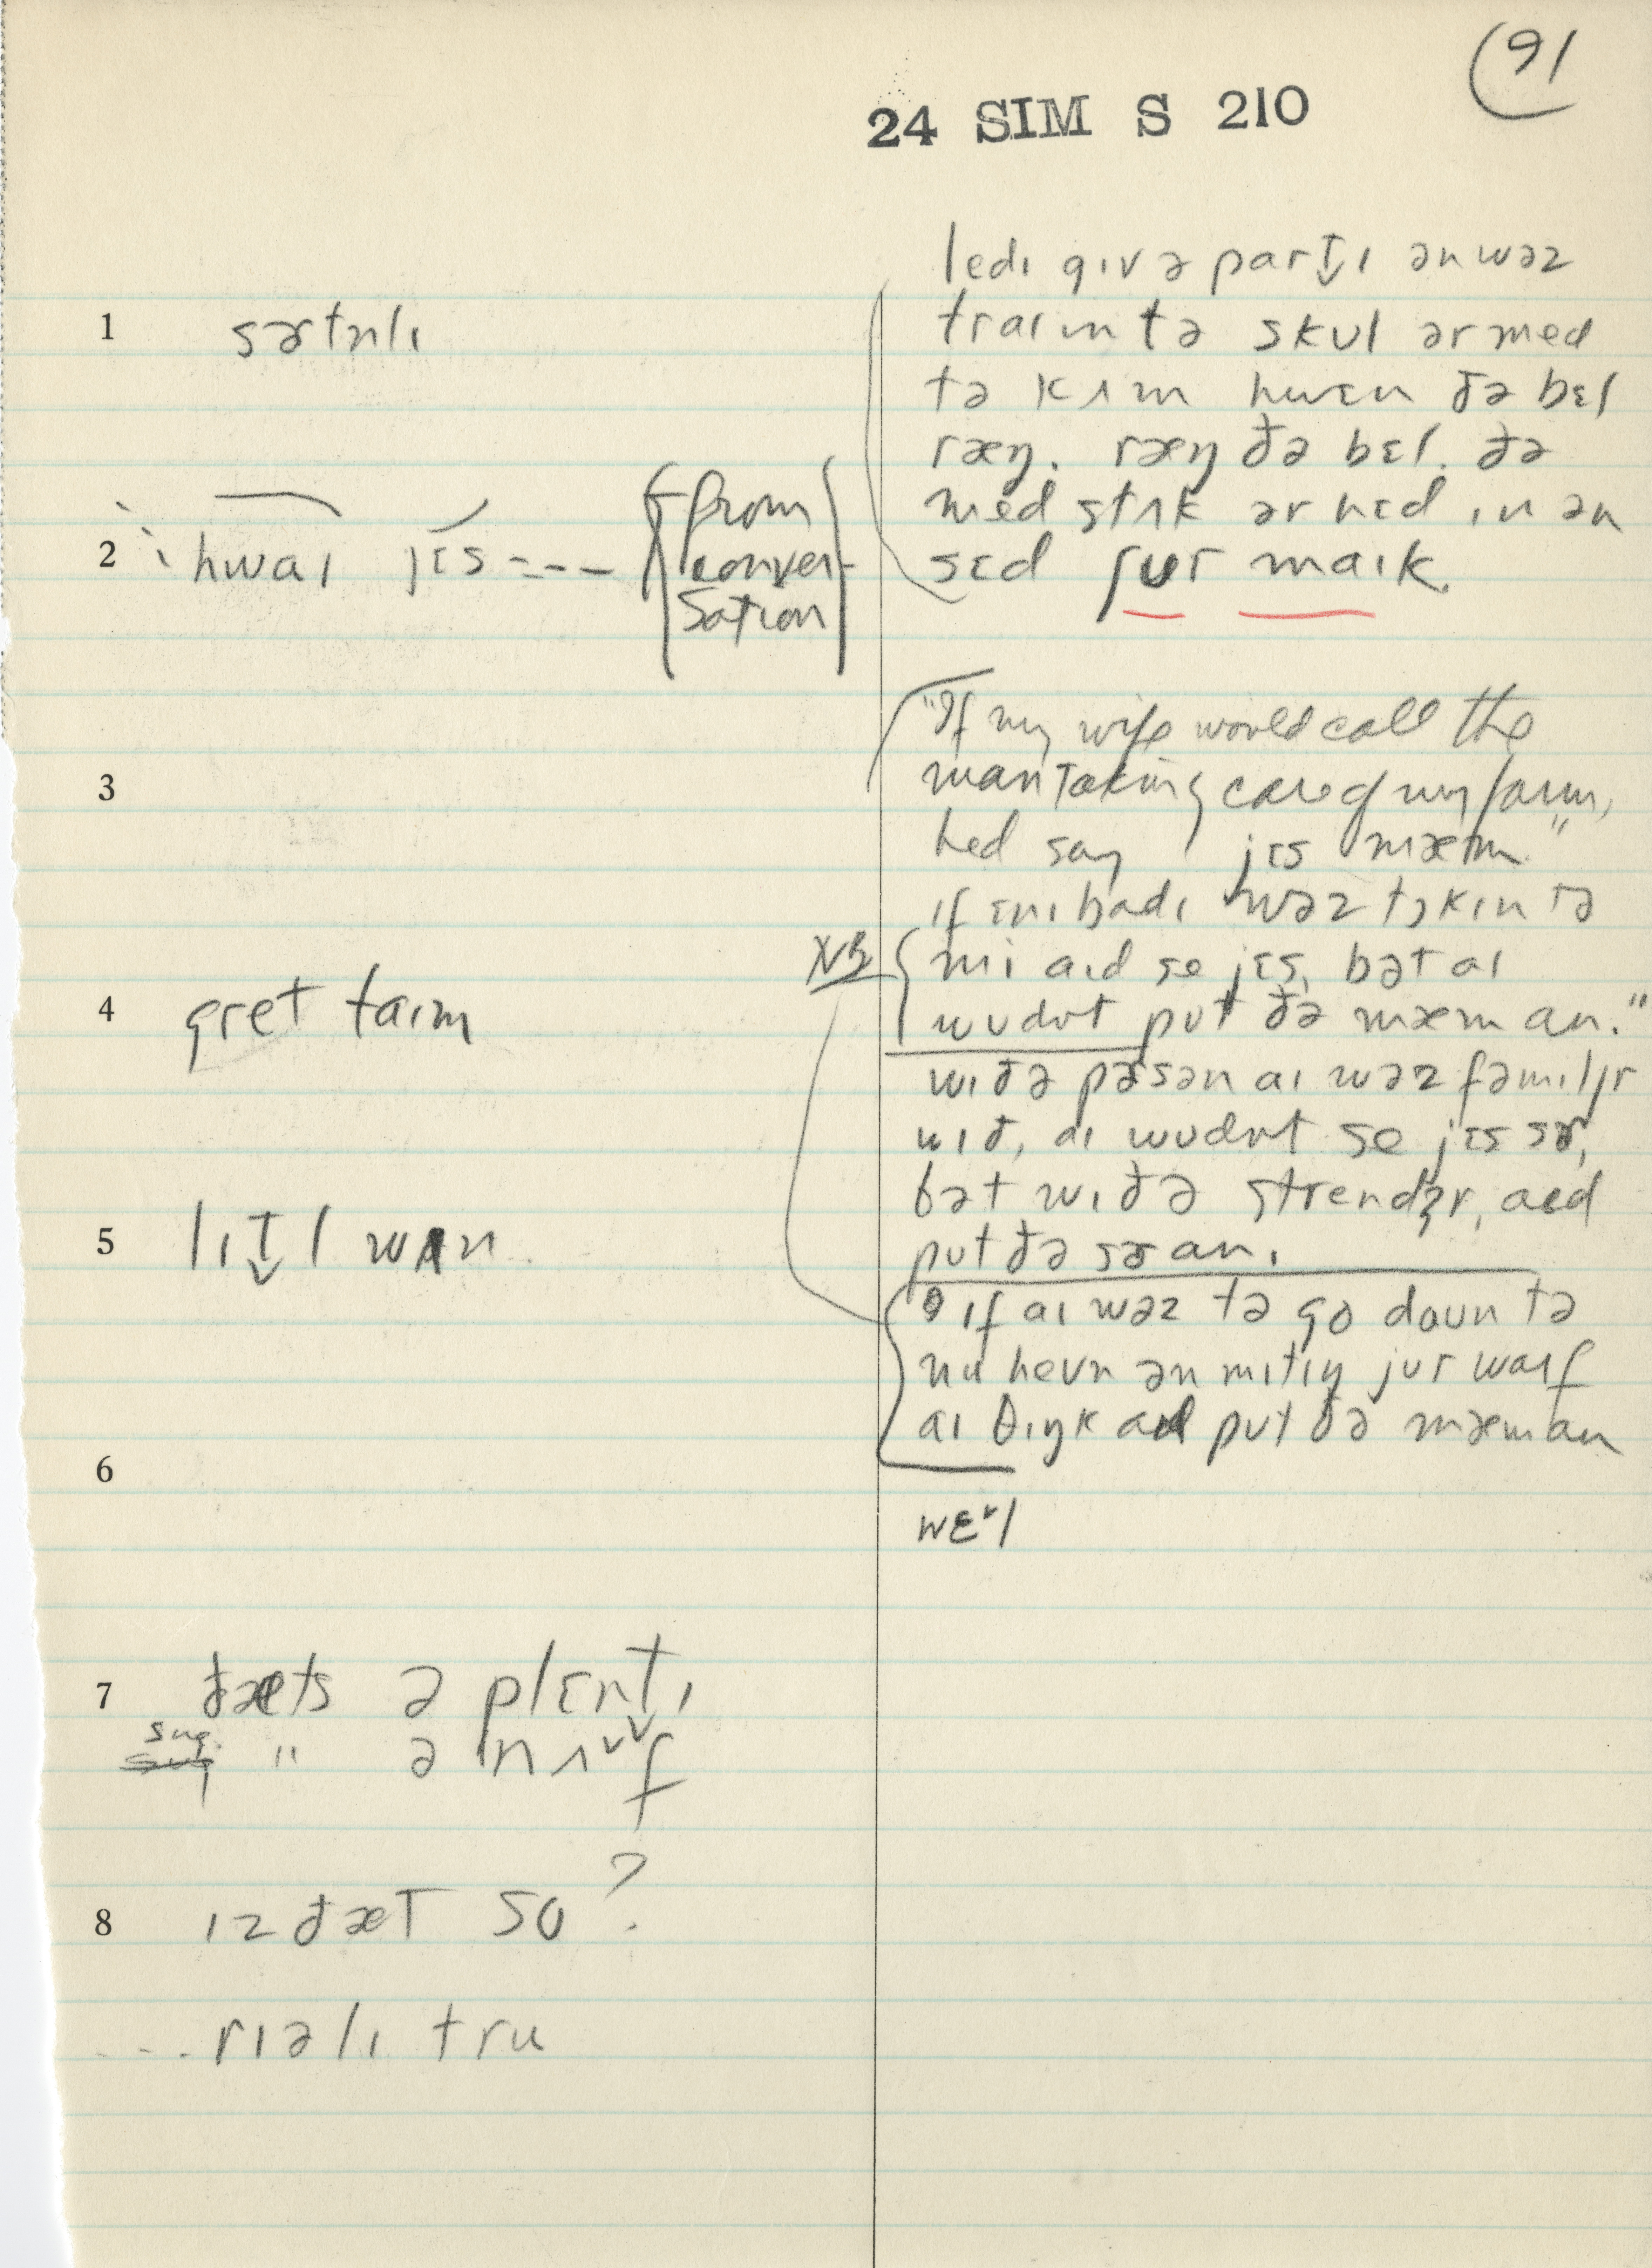 91
24 SIM S 210
1 sɚtnlɪ
2 hwaɪ jɛs --- (from conver-sation)
3
4 gret taɪm
5 lɪt̬l wʌn
6
7 ðæts ə plɛnt̬ɪ
sug. " ə nʌf
8 ɪz ðæt so?
... rɪəlɪ tru
ledɪ gɪv ə part̬ɪ ən wəz
traɪɪn tə skul ər med
tə kʌm hwɛn ðə bɛl
ræŋ. ræŋ ðə bɛl. ðə
med stʌk ər hɛd ɪn ən
sɛd ʃur maɪk.
"If my wife would call the
man taking care of my farm,
hed say jɛs mæm."
ɪf ɛnɪbadɪ wəz tɔkɪn tə
NB mi aɪd se jɛs, bət aɪ
wudnt put ðə mæm an."
wɪð ə pɚsən aɪ wəz fəmɪljr
wɪð, aɪ wudnt se jɛs sɚ,
bət wɪð ə strendʒr, aɪd
put ðə sɚ an.
ɪf aɪ wəz tə go daun tə
nu hevn ən mitɪŋ jur waɪf
aɪ θɪŋk aɪd put ðə mæm an
wɛ˅l